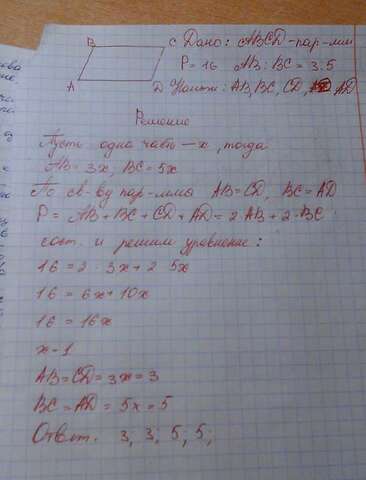 B C Дано: ABCD - пар-мм
P = 16 AB : BC = 3:5
A D Найти: AB, BC, CD, AD
Решение
Пусть одна часть - x, тогда
AB = 3x, BC = 5x
По св-ву пар-мма AB = CD, BC = AD
P = AB + BC + CD + AD = 2 AB + 2·BC
сост. и решим уравнение:
16 = 2 · 3x + 2 5x
16 = 6x + 10x
16 = 16x
x - 1
AB = CD = 3x = 3
BC = AD = 5x = 5
Ответ. 3; 3; 5; 5;